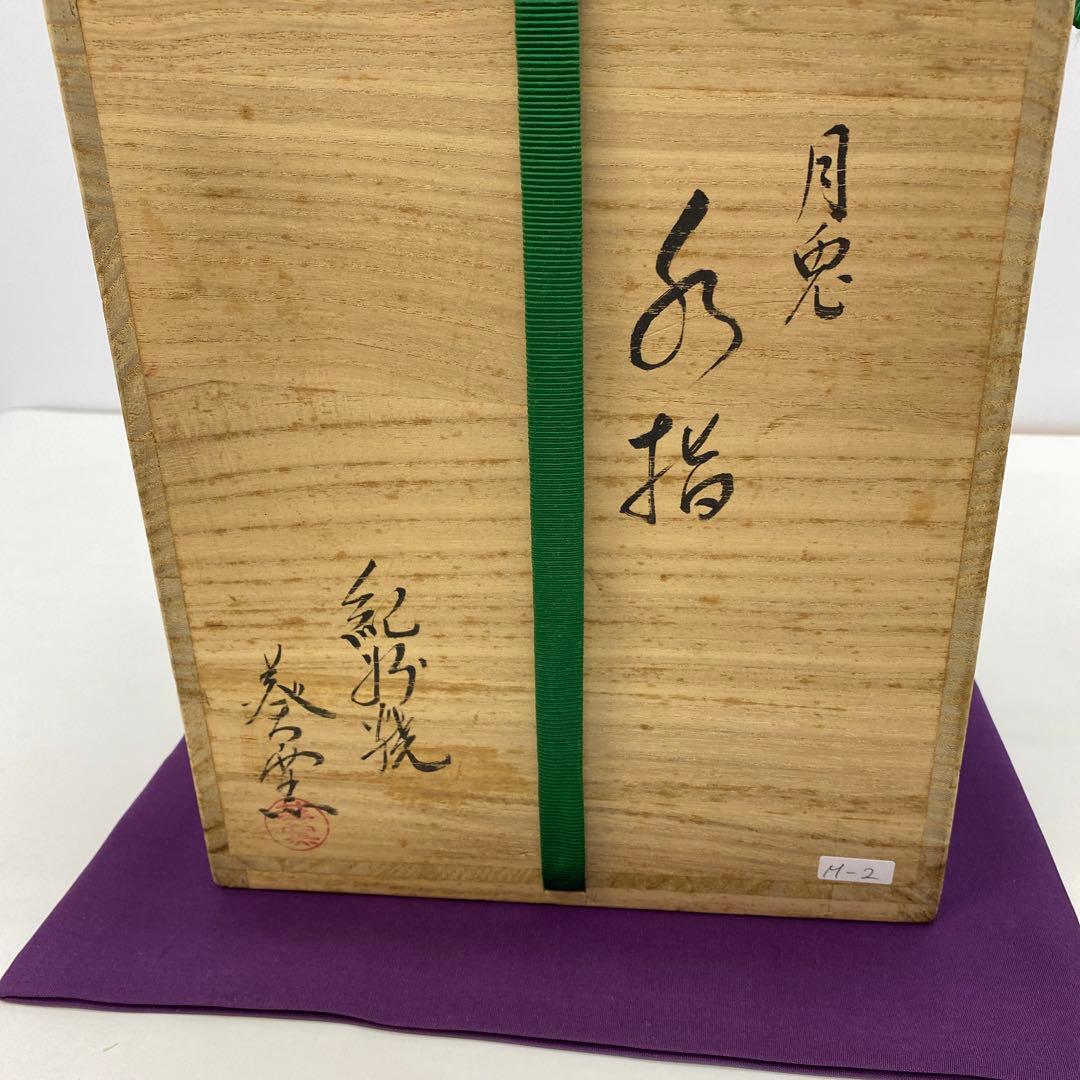 月兎
水指
紀州焼
葵窯
M-2